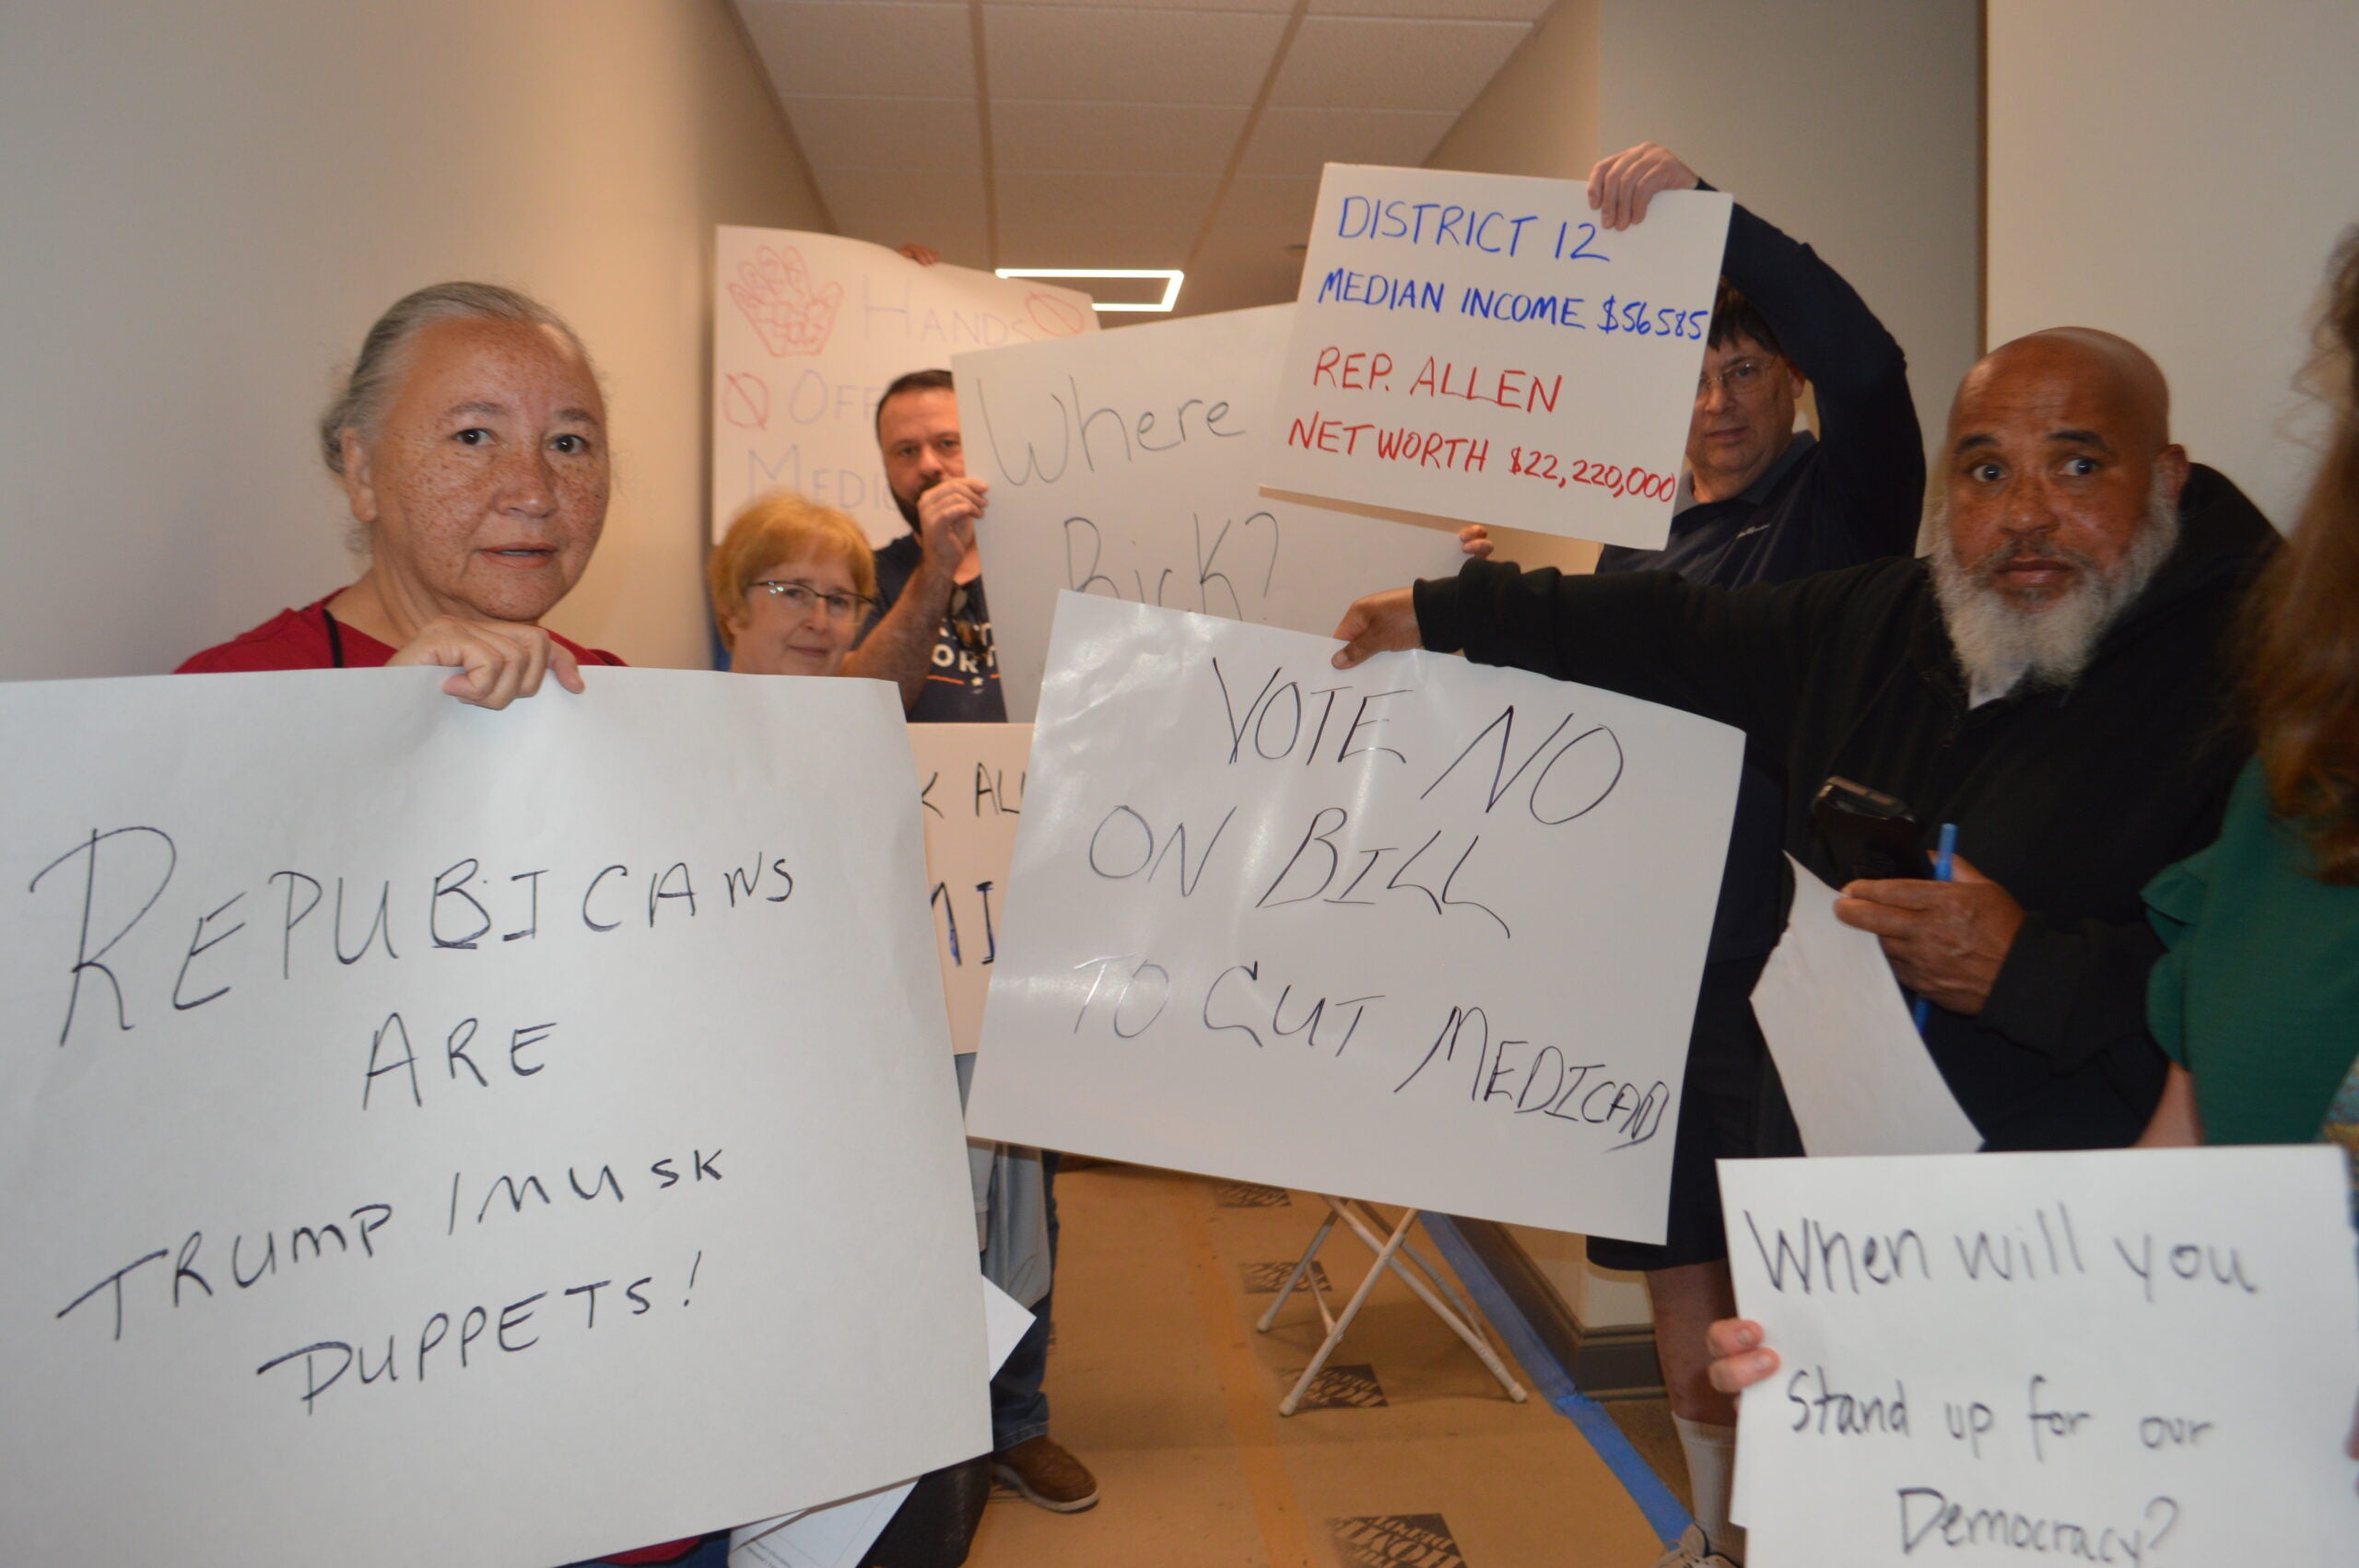 HANDS
OFF
Where
Rick?
DISTRICT 12
MEDIAN INCOME $56585
REP. ALLEN
NET WORTH $22,220,000
REPUBICANS
ARE
TRUMP/MUSK
PUPPETS!
VOTE NO
ON BILL
TO CUT MEDICAID
When will you
Stand up for our
Democracy?